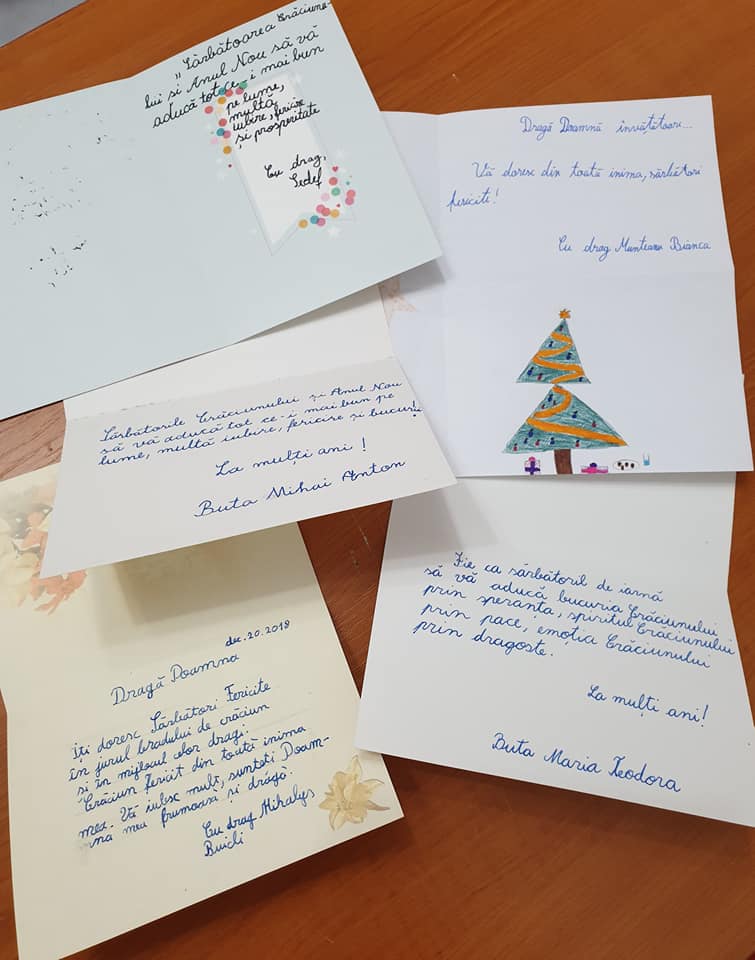 "Sărbătoarea Crăciunu-
lui si Anul Nou să vă
aducă tot ce-i mai bun
pe lume,
multă
iubire, fericire
și prosperitate
Cu drag,
Sedef
Dragă Doamnă învățătoare...
Vă doresc din toată inima, sărbători
fericite!
Cu drag Munteanu Bianca
Sărbătorile Crăciunului și Anul Nou
să vă aducă tot ce-i mai bun pe
lume, multă iubire, fericire și bucurii!
La mulți ani!
Buta Mihai Anton
Fie ca sărbătoril de iarnă
să vă aducă bucuria Crăciunului
prin speranta, spiritul Crăciunului
prin pace, emoția Crăciunului
prin dragoste.
La mulți ani!
Buta Maria Teodora
dec.20.2018
Dragă Doamna
Iți doresc Sărbători Fericite
în jurul bradului de crăciun
si în mijlocul celor dragi.
Crăciun fericit din toată inima
mea. Vă iubesc mult, sunteti Doam-
na mea frumoasă și dragă.
Cu drag Mihalys
Buicli